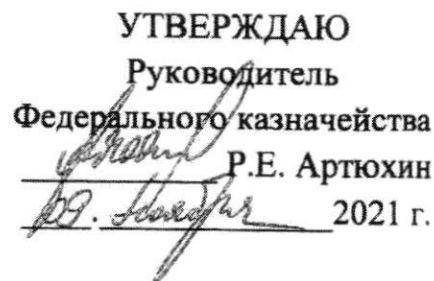 УТВЕРЖДАЮ
Руководитель
Федерального казначейства
Р.Е. Артюхин
ноября 2021 г.